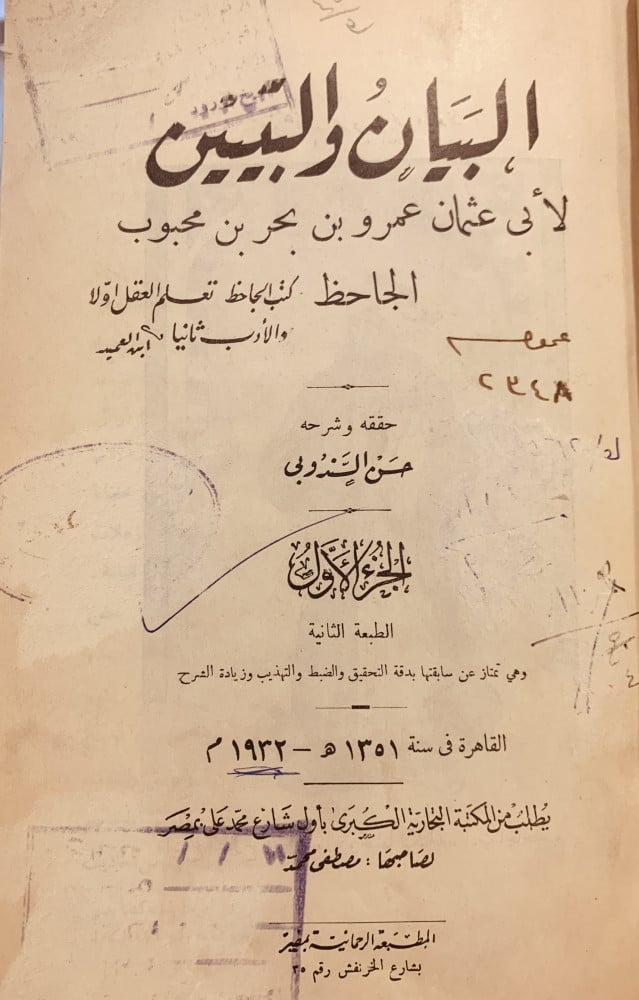 البَيَانُ والتبيين
لأبى عثمان عمرو بن بحر بن محبوب
الجاحظ كتب الجاحظ تعلم العقل اوّلا
والأدب ثانيا ابن العميد
عمو
٨٤٣٢
حققه وشرحه
حَسَن السَّندُوبى
الجزء الأوّلُ
الطبعة الثانية
وهي تمتاز عن سابقتها بدقة التحقيق والضبط والتهذيب وزيادة الشرح
القاهرة فى سنة ١٣٥١ ه – ١٩٣٢ م
يُطلب من المكتبة التجارية الكُبرى بأول شارع محمد على بمصر
لصاحبها : مصطفى محمد
المطبعة الرحمانية بمصر
بشارع الخرنفش رقم ٣٥